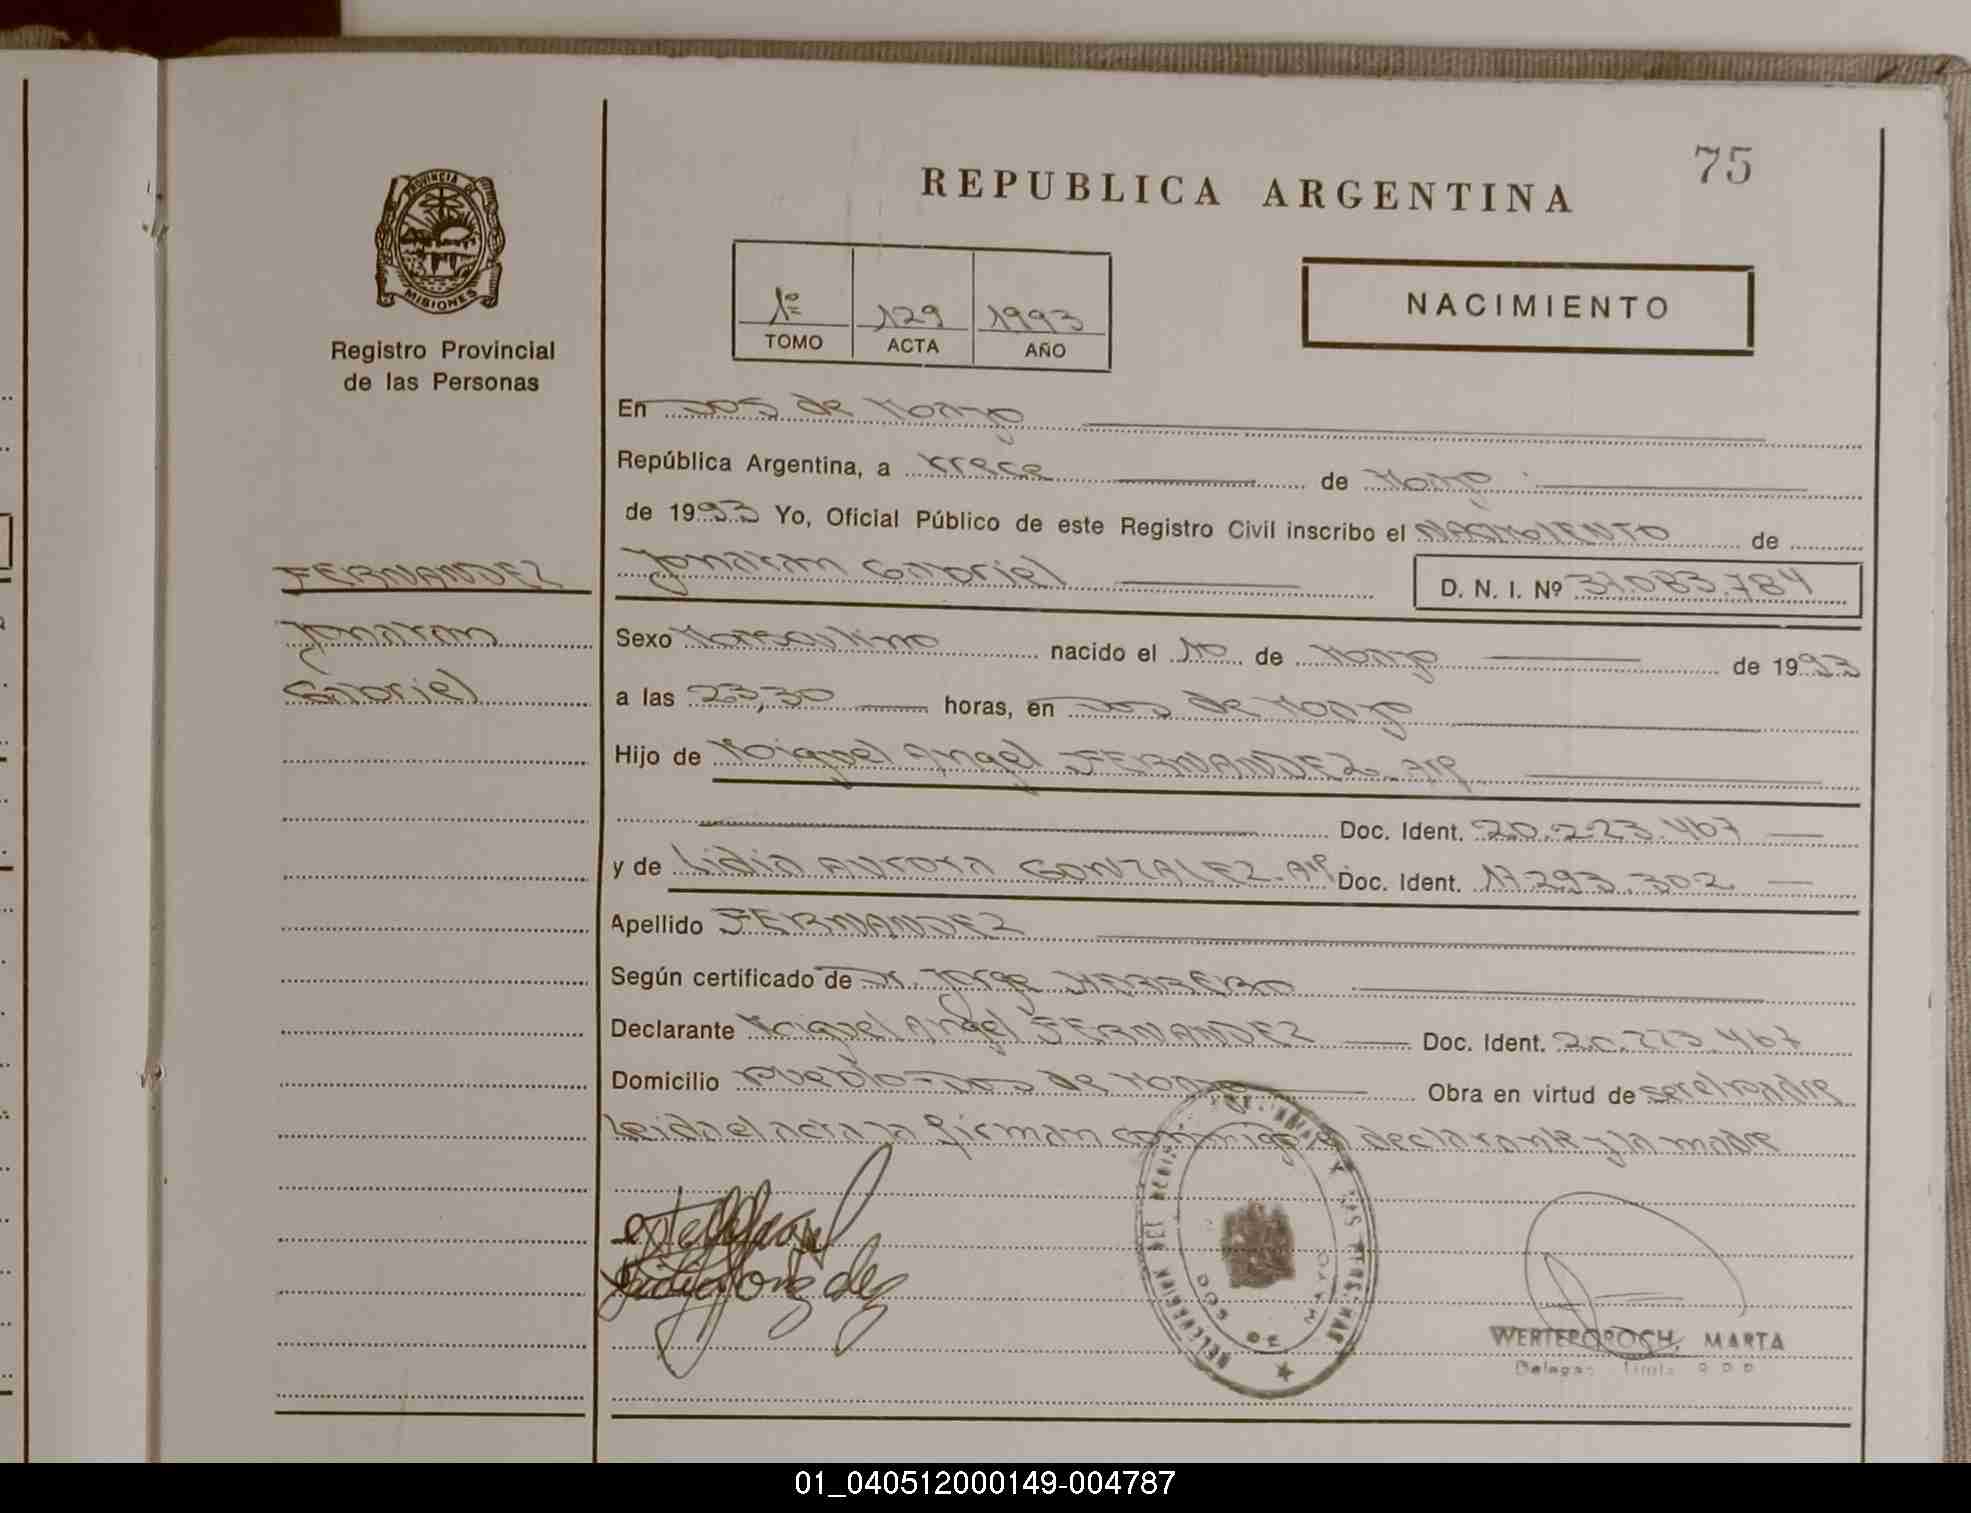 75
REPUBLICA ARGENTINA
PROVINCIA DE
MISIONES
Registro Provincial
de las Personas
1º 129 1993
TOMO ACTA AÑO
NACIMIENTO
En Dos de Mayo
República Argentina, a trece de Mayo
de 1993 Yo, Oficial Público de este Registro Civil inscribo el NACIMIENTO de
FERNANDEZ
Jonatan
Gabriel
Jonatan Gabriel D. N. I. Nº 37.083.784
Sexo Masculino nacido el 10 de Mayo de 1993
a las 23,30 horas, en Dos de Mayo
Hijo de Miguel Angel FERNANDEZ. Arg
Doc. Ident. 20.223.467
y de Lidia Aurora GONZALEZ. Arg. Doc. Ident. 17.293.302
Apellido FERNANDEZ
Según certificado de Dr. Jorge
Declarante Miguel Angel FERNANDEZ Doc. Ident. 20.223.467
Domicilio Pueblo Dos de Mayo Obra en virtud de ser el padre
Leida el acta la firman conmigo el declarante y la madre
DOS DE MAYO
WERTEROROCH, MARTA
01_040512000149-004787